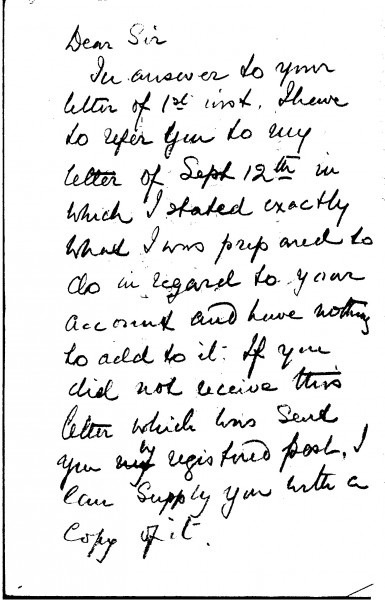 Dear Sir
In answer to your
letter of 1st inst. I have
to refer you to my
letter of Sept 12th in
which I stated exactly
what I was prepared to
do in regard to your
account and have nothing
to add to it. If you
did not receive this
letter which was Send
you by registered post, I
can Supply you with a
Copy of it.